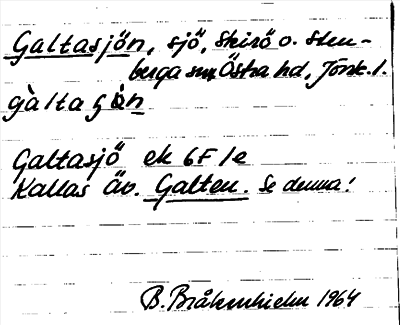 Galtasjön, sjö, Skirö o. Sten-
berga snr Östra hd, Jönk. l.
gàltaʃö̀n
Galtasjö ek 6F 1e
Kallas äv. Galten. Se denna!
B. Bråkenhielm 1964